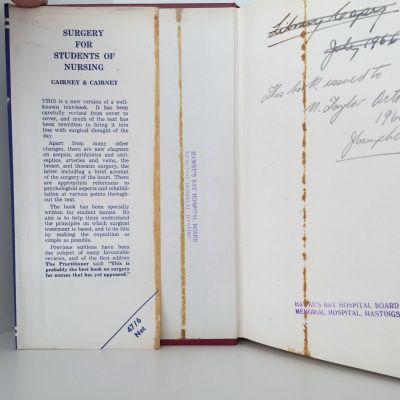 SURGERY
FOR
STUDENTS OF
NURSING
CAIRNEY & CAIRNEY
THIS is a new version of a well-
known text-book. It has been
carefully revised from cover to
cover, and much of the text has
been rewritten to bring it into
line with surgical thought of the
day.
Apart from many other
changes, there are new chapters
on asepsis, antibiotics and anti-
septics, arteries and veins, the
breast, and thoracic surgery, the
latter including a brief account
of the surgery of the heart. There
are appropriate references to
psychological aspects and rehabili-
tation at various points through-
out the text.
The book has been specially
written for student nurses. Its
aim is to help them understand
the principles on which surgical
treatment is based, and to do this
by making the exposition as
simple as possible.
Previous editions have been
the subject of many favourable
reviews, and of the first edition
The Practitioner said: "This is
probably the best book on surgery
for nurses that has yet appeared."
47/6
Net
HAWKE'S BAY HOSPITAL BOARD
MEMORIAL HOSPITAL, HASTINGS
Library Copy
July 1966
This book issued to
N. Taylor Octo
196
HAWKE'S BAY HOSPITAL BOARD
MEMORIAL HOSPITAL, HASTINGS